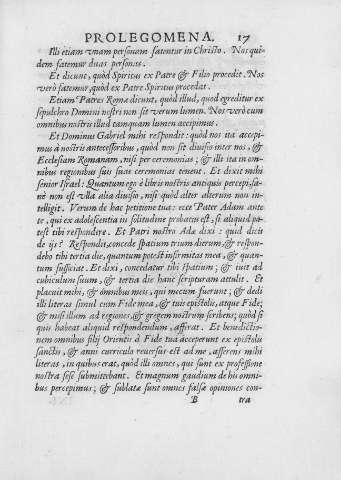 PROLEGOMENA. 17
Illi etiam vnam personam fatentur in Christo. Nos qui-
dem fatemur duas personas.
Et dicunt, quòd Spiritus ex Patre & Filio procedit. Nos
verò fatemur, quòd ex Patre Spiritus procedat.
Etiam Patres Romæ dicunt, quòd illud, quod egreditur ex
sepulchro Domini nostri non sit verum lumen. Nos verò cum
omnibus nostris illud tamquam lumen accepimus.
Et Dominus Gabriel mihi respondit: quòd nos ita accepi-
mus à nostris antecessoribus, quòd non sit diuisio inter nos, &
Ecclesiam Romanam, nisi per ceremonias; & illi ita in om-
nibus regionibus suis suas ceremonias tenent. Et dixit mihi
senior Israel: Quantum ego è libris nostris antiquis percepi, sa-
nè non est vlla alta diuisio, nisi quòd alter alterum non intel-
ligit. Verum de hac petitione tua: ecce Pater Adam ante
te, qui ex adolescentia in solitudine probatus est, si aliquid po-
test tibi respondere. Et Patri nostro Adæ dixi: quid dicis
de ijs? Respondit, concede spatium trium dierum, & respon-
debo tibi tertia die, quantum potest infirmitas mea, & quan-
tum sufficiat. Et dixi, concedatur tibi spatium; & iuit ad
cubiculum suum, & tertia die hanc scripturam attulit. Et
placuit mihi, & omnibus meis, qui mecum fuerunt; & dedi
illi literas simul cum Fide mea, & tuis epistolis, atque Fide;
& misi illum ad regiones, & gregem nostrum scribens; quòd si
quis habeat aliquid respondendum, afferat. Et benedictio-
nem omnibus filij Orientis à Fide tua acceperunt ex epistola
sancta, & anni curriculo reuersus est ad me, afferens mihi
literas, in quibus erat, quòd illi omnes, qui sunt ex professione
nostra sese submittebant. Et magnum gaudium de his omni-
bus percepimus; & sublatæ sunt omnes falsæ opiniones con-
B tra